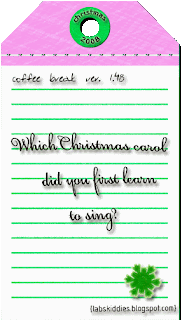 Christmas
2006
coffee break ver. 1.48
Which Christmas carol
did you first learn
to sing?
{labskiddies.blogspot.com}